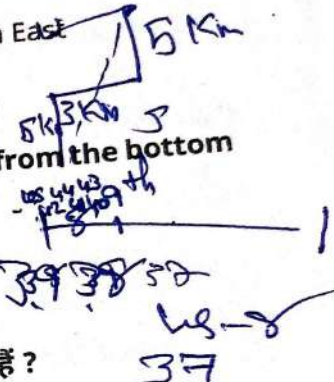 East
5 Km
5K 3 Km 5
from the bottom
45 44 43
9th
39 38 37
45-8
हैं ?
37